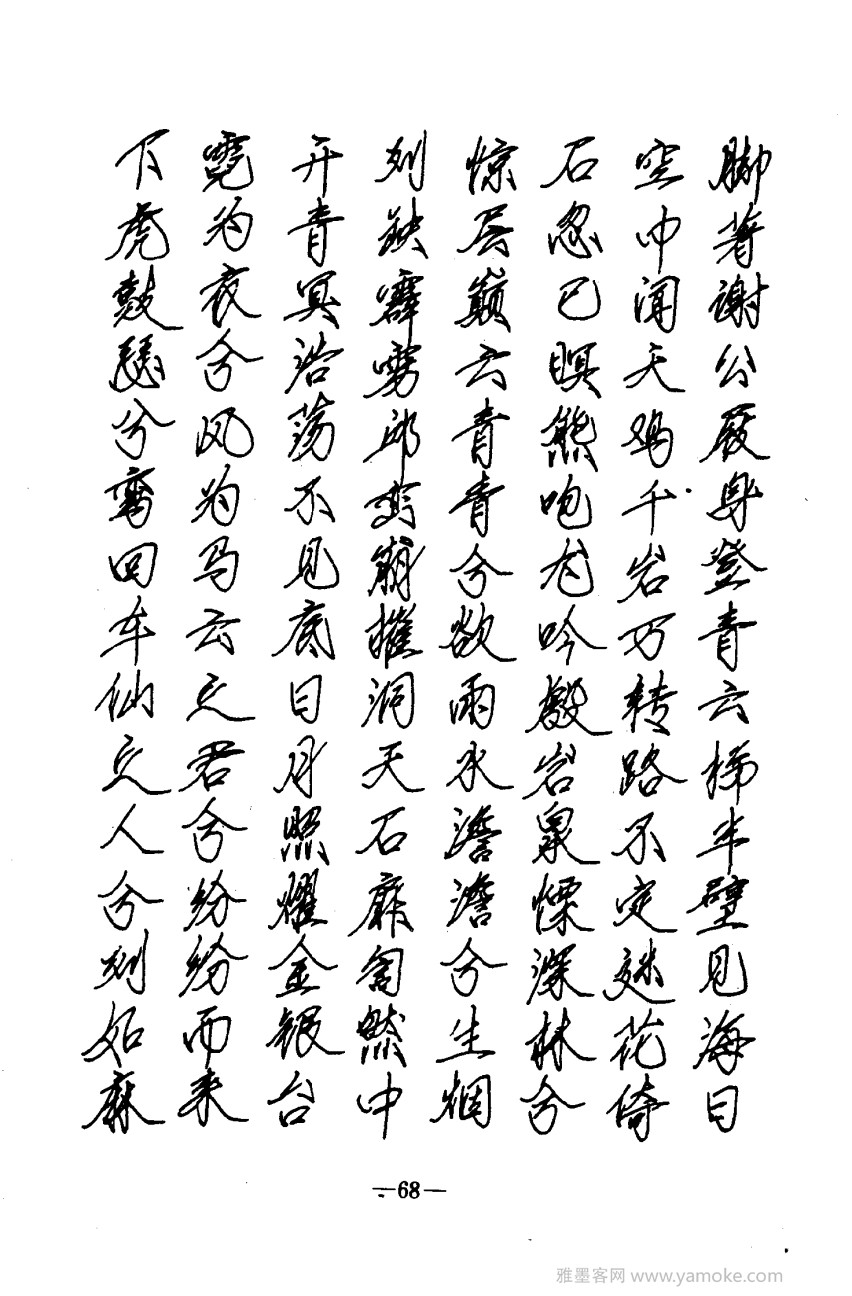 脚著谢公屐身登青云梯半壁见海日
空中闻天鸡千岩万转路不定迷花倚
石忽已暝熊咆龙吟殷岩泉慄深林兮
惊层巅云青青兮欲雨水澹澹兮生烟
列缺霹雳邱峦崩摧洞天石扉訇然中
开青冥浩荡不见底日月照耀金银台
霓为衣兮风为马云之君兮纷纷而来
下虎鼓瑟兮鸾回车仙之人兮列如麻
—68—
雅墨客网 www.yamoke.com